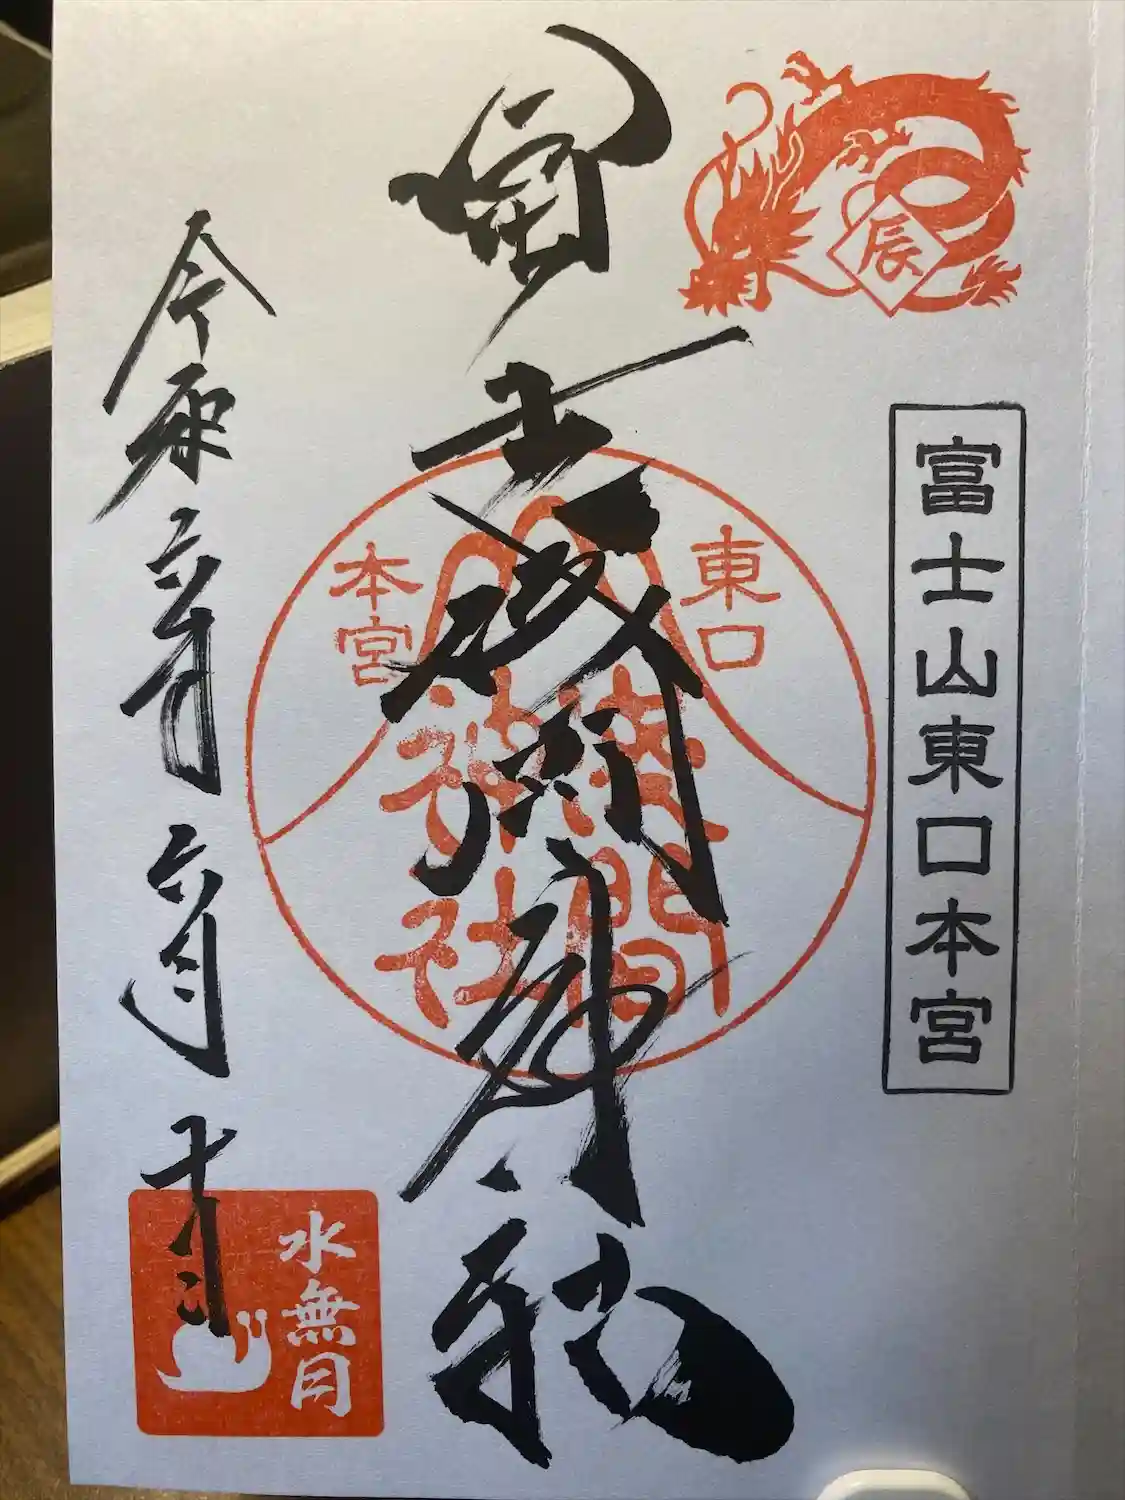 辰
富士山東口本宮
冨士浅間神社
東口
本宮
浅間
神社
令和六年六月
水無月